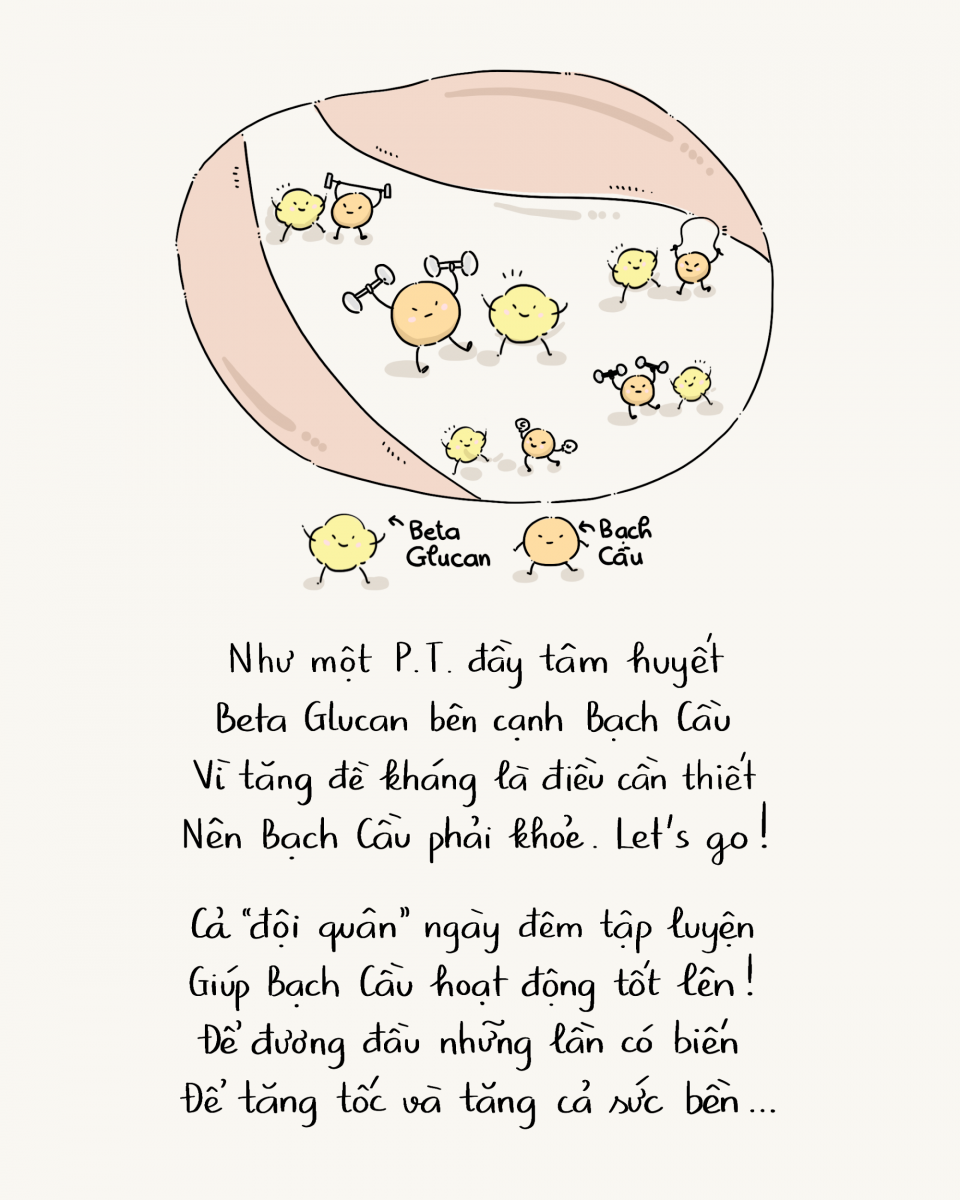 Beta
Glucan
Bạch
Cầu
Như một P.T. đầy tâm huyết
Beta Glucan bên cạnh Bạch Cầu
Vì tăng đề kháng là điều cần thiết
Nên Bạch Cầu phải khỏe. Let's go!
Cả "đội quân" ngày đêm tập luyện
Giúp Bạch Cầu hoạt động tốt lên!
Để đương đầu những lần có biến
Để tăng tốc và tăng cả sức bền...